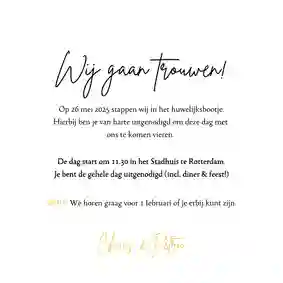 Wij gaan trouwen!
Op 26 mei 2025 stappen wij in het huwelijksbootje.
Hierbij ben je van harte uitgenodigd om deze dag met
ons te komen vieren.
De dag start om 11.30 in het Stadhuis te Rotterdam.
Je bent de gehele dag uitgenodigd (incl. diner & feest!)
We horen graag voor 1 februari of je erbij kunt zijn.